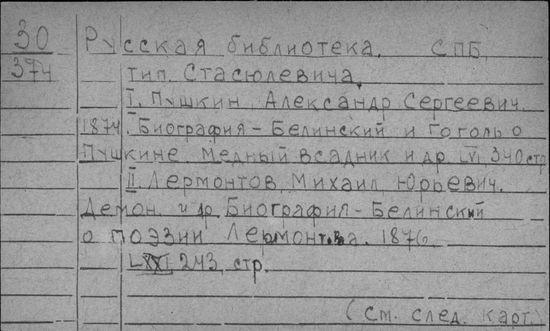 30 Русская библиотека. СПБ,
374 тип. Стасюлевича.
I. Пушкин, Александр Сергеевич.
1874. Биография - Белинский и Гоголь о
Пушкине. Медный всадник и др. LVI, 340 стр
II. Лермонтов, Михаил Юрьевич.
Демон и др. Биография - Белинский
о поэзии Лермонтова. 1876.
LXXI, 243, стр.
(см. след. карт.)